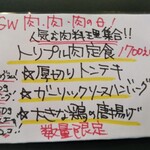 GW 肉!・肉・肉の日!
人気お肉料理集合!!
トリプル肉定食 1700
☆厚切りトンテキ
☆ガーリックソースハンバーグ
☆大きな鶏の唐揚げ
数量限定